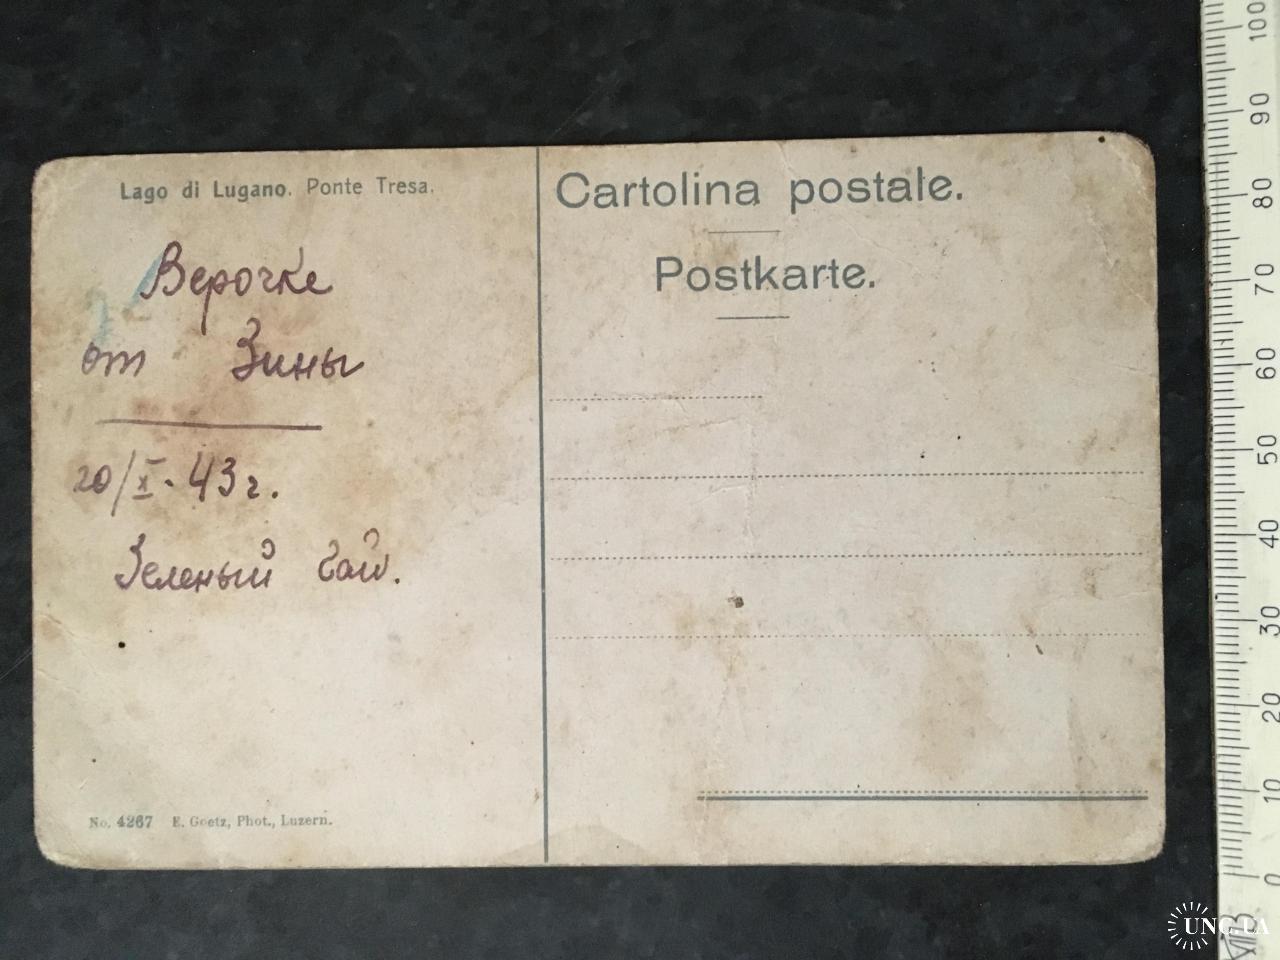 Lago di Lugano. Ponte Tresa.
Верочке
от Зины
20/X. 43 г.
Зеленый Гай.
No. 4267 E. Goetz, Phot., Luzern.
Cartolina postale.
Postkarte.
100
90
80
70
60
50
40
30
20
10
0
UNC.UA